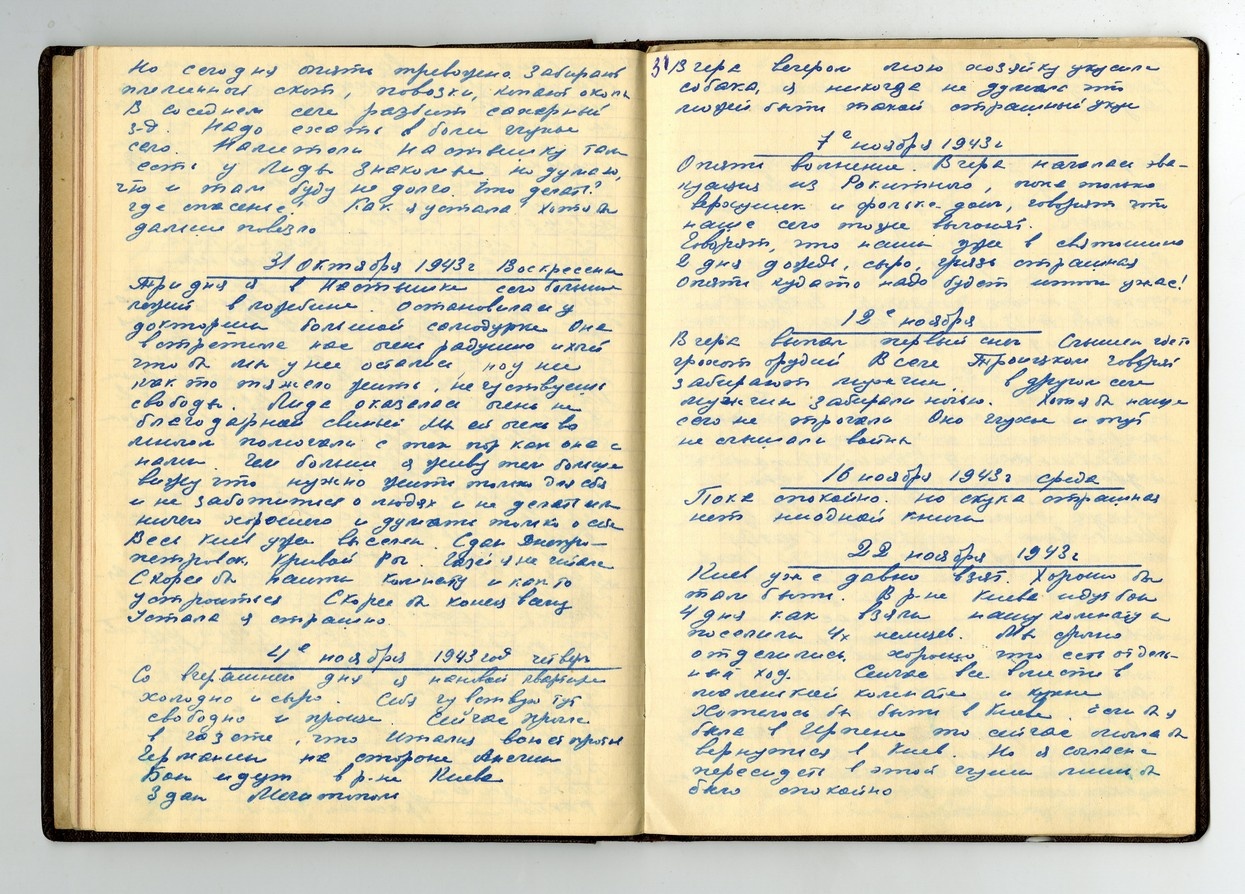 Но сегодня опять тревожно. Забирают
племенной скот, повозки, копают окопы
В соседнем селе разбит сахарный
з-д. Надо ехать в более глухое
село. Наметили Насташку там
есть у Лиды знакомые но думаю,
что и там буду не долго. Что делать?
где спасенье? Как я устала. Хотя бы
дальше повезло
31 Октября 1943г Воскресенье
Три дня я в Насташке село большое
лежит в ложбине. Остановилась у
докторши большой самодурке Она
встретила нас очень радушно и хотит
что бы мы у нее остались, но у нее
как то тяжело жить, не чувствуешь
свободы. Лида оказалась очень не
благодарной свиньей Мы ей очень во
многом помогали с тех пор как она с
нами. Чем больше я живу тем больше
вижу что нужно жить только для себя
и не заботиться о людях и не делать им
ничего хорошего и думать только о себе
Весь Киев уже выселен. Сдан Днепро-
петровск, Кривой Рог. Газет я не читала
Скорее бы найти комнату и как то
устроиться Скорее бы конец всему
Устала я страшно.
4е ноября 1943 год четверг
Со вчерашнего дня я на новой квартире
Холодно и сыро. Себя чувствую тут
свободно и проще. Сейчас прочла
в газете, что Италия воюет против
Германии на стороне Англии
Бои идут в р-не Киева
Здан Мелитополь
31 Вчера вечером мою хозяйку укусила
собака, я никогда не думала что
может быть такой страшный укус
7е ноября 1943г
Опять волнение. Вчера началась эва-
куация из Рокитного, пока только
и фольксдойч, говорят что
наше село тоже выгонят.
Говорят, что наши уже в Святошино
2 дня дождь, сыро, грязь страшная
Опять куда то надо будет идти ужас!
12е ноября
Вчера выпал первый снег Слышен где то
грохот орудий В селе Троицком говорят
забирают мужчин. в другом селе
мужчин забирали ночью. Хотя бы наше
село не трогали Оно глухое и тут
не слышали войны
16 ноября 1943г среда
Пока спокойно. но скука страшная
нет ниодной книги
22 ноября 1943г
Киев уже давно взят. Хорошо бы
там быть. В р-не Киева идут бои
4 дня как взяли нашу комнату и
поселили 4х немцев. Мы
отделились, хорошо что есть отдель-
ный ход. Сейчас все вместе в
маленькой комнате и кухне
Хотелось бы быть в Киеве. Если бы я
была в Ирпене то сейчас могла бы
вернуться в Киев. Но я согласна
пересидеть в этой глуши лишь бы
было спокойно